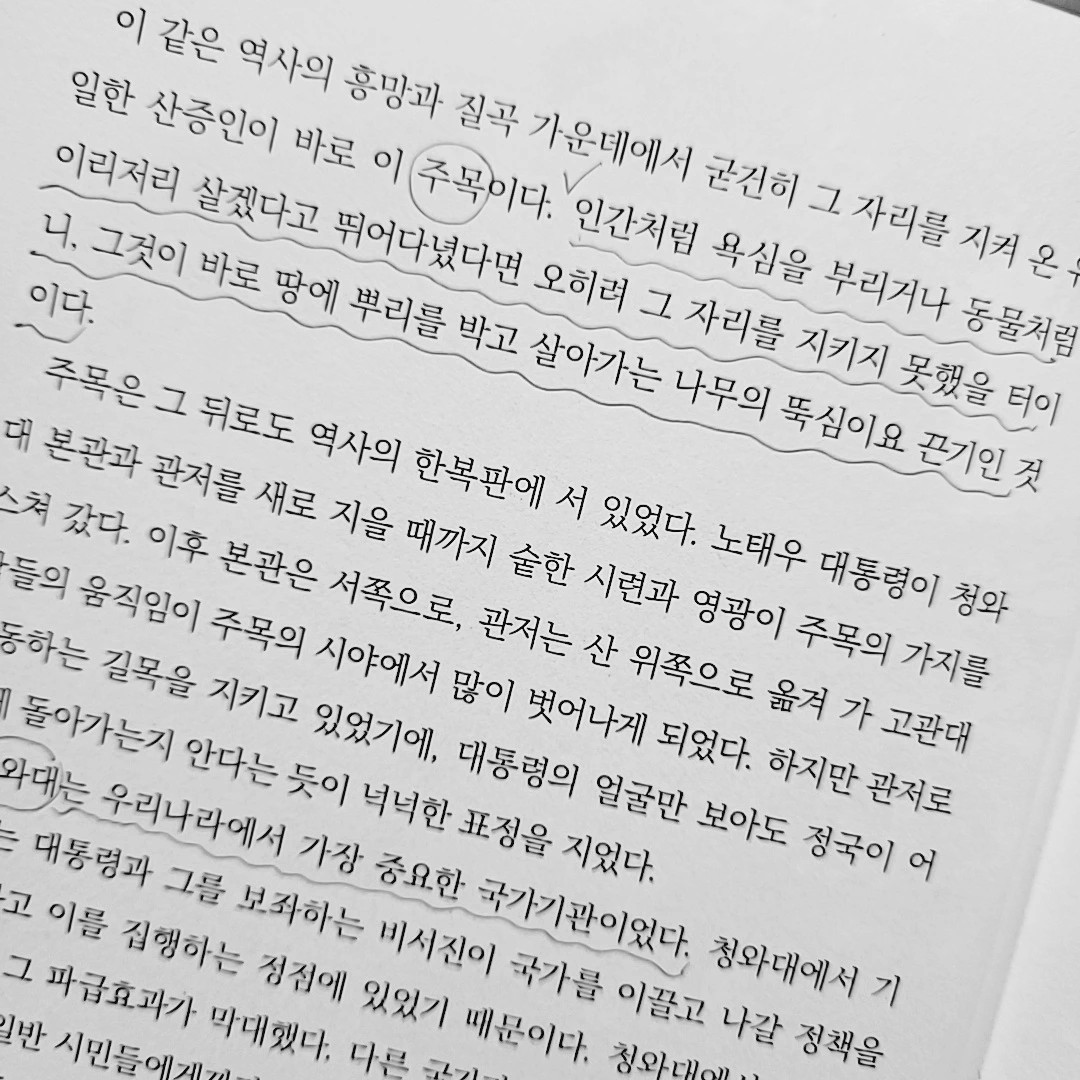 이 같은 역사의 흥망과 질곡 가운데에서 굳건히 그 자리를 지켜 온
일한 산증인이 바로 이 주목이다. 인간처럼 욕심을 부리거나 동물처럼
이리저리 살겠다고 뛰어다녔다면 오히려 그 자리를 지키지 못했을 터이
니, 그것이 바로 땅에 뿌리를 박고 살아가는 나무의 뚝심이요 끈기인 것
이다.
주목은 그 뒤로도 역사의 한복판에 서 있었다. 노태우 대통령이 청와
대 본관과 관저를 새로 지을 때까지 숱한 시련과 영광이 주목의 가지를
스쳐 갔다. 이후 본관은 서쪽으로, 관저는 산 위쪽으로 옮겨 가 고관대
들의 움직임이 주목의 시야에서 많이 벗어나게 되었다. 하지만 관저로
동하는 길목을 지키고 있었기에, 대통령의 얼굴만 보아도 정국이 어
돌아가는지 안다는 듯이 넉넉한 표정을 지었다.
와대는 우리나라에서 가장 중요한 국가기관이었다. 청와대에서 기
는 대통령과 그를 보좌하는 비서진이 국가를 이끌고 나갈 정책을
고 이를 집행하는 정점에 있었기 때문이다. 청와대에서
그 파급효과가 막대했다. 다른
일반 시민들에게